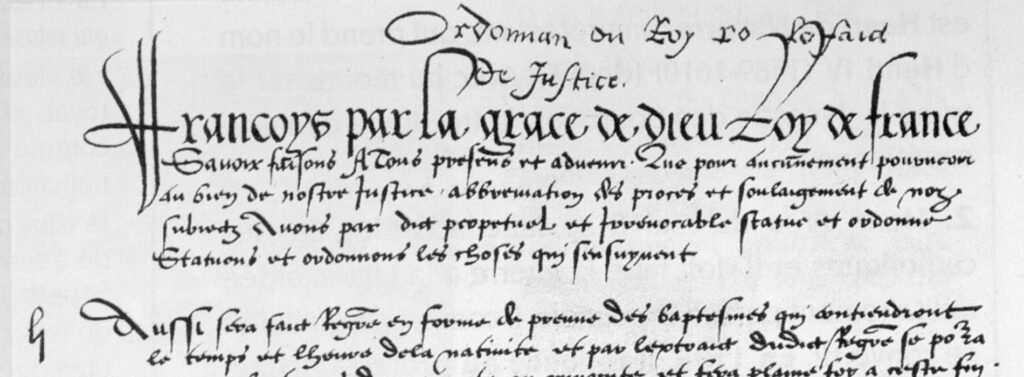 Ordonnan du Roy
De Justice.
Francoys par la grace de dieu Roy de france
Savoir faisons A Tous presens et advenir. Que pour aucunement pourveoir
au bien de nostre Justice. abbreviation des proces et soulaigement de noz
subiectz Avons par edict perpetuel et Irrevocable statue et ordonne
Statuons et ordonnons les choses qui sensuyvent
Aussi sera faict Regre en forme de preuve des baptesmes qui contiendront
le temps et lheure dela nativite et par lextraict dudict Regre se porra
et fera plaine foy a ceste fin